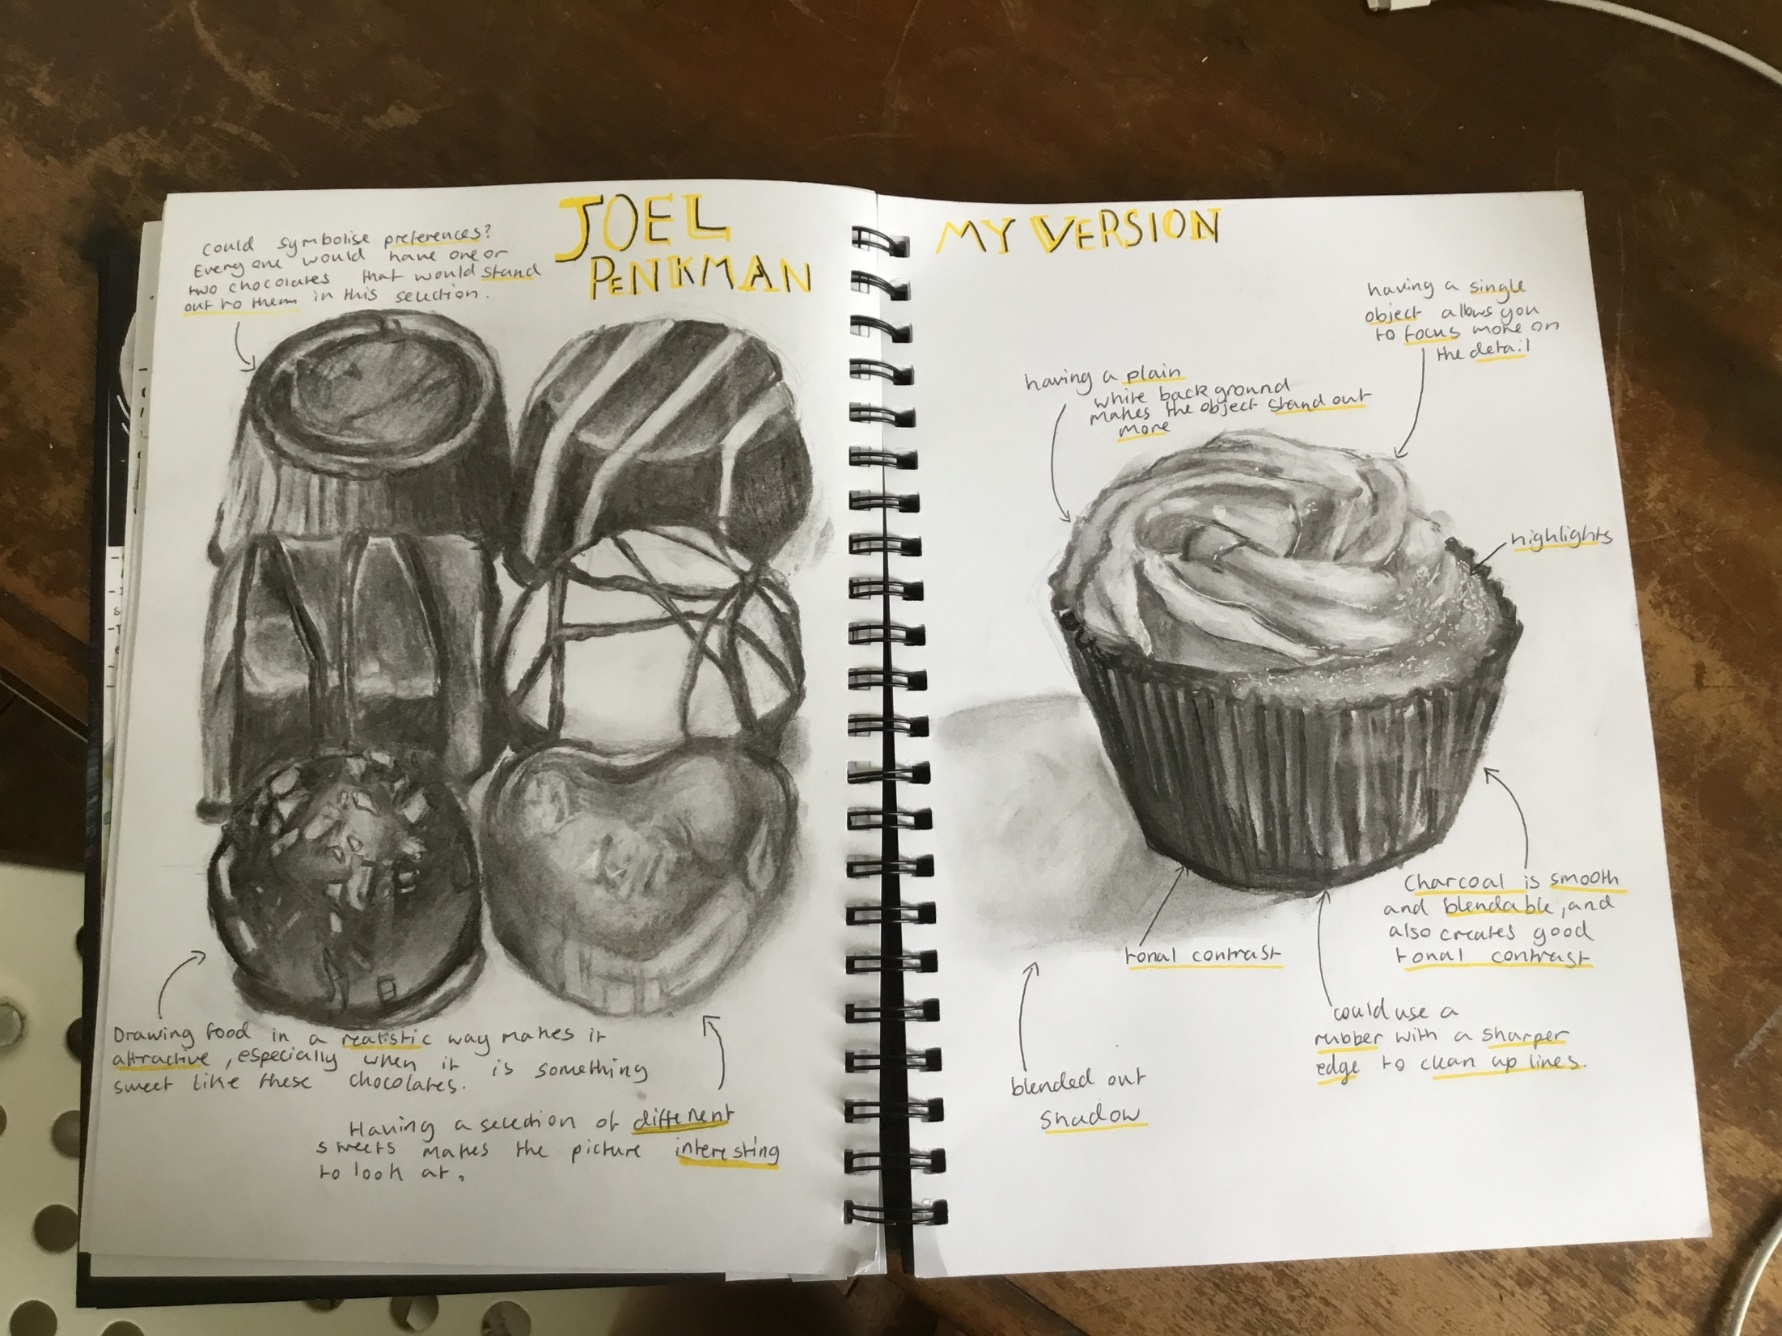 JOEL
PENKMAN
could symbolise preferences?
Everyone would have one or
two chocolates that would stand
out to them in this selection.
Drawing food in a realistic way makes it
attractive, especially when it is something
sweet like these chocolates.
Having a selection of different
sweets makes the picture interesting
to look at.
MY VERSION
having a single
object allows you
to focus more on
the detail
having a plain
white background
makes the object stand out
more
highlights
Charcoal is smooth
and blendable, and
also creates good
tonal contrast
tonal contrast
could use a
rubber with a sharper
edge to clean up lines.
blended out
shadow